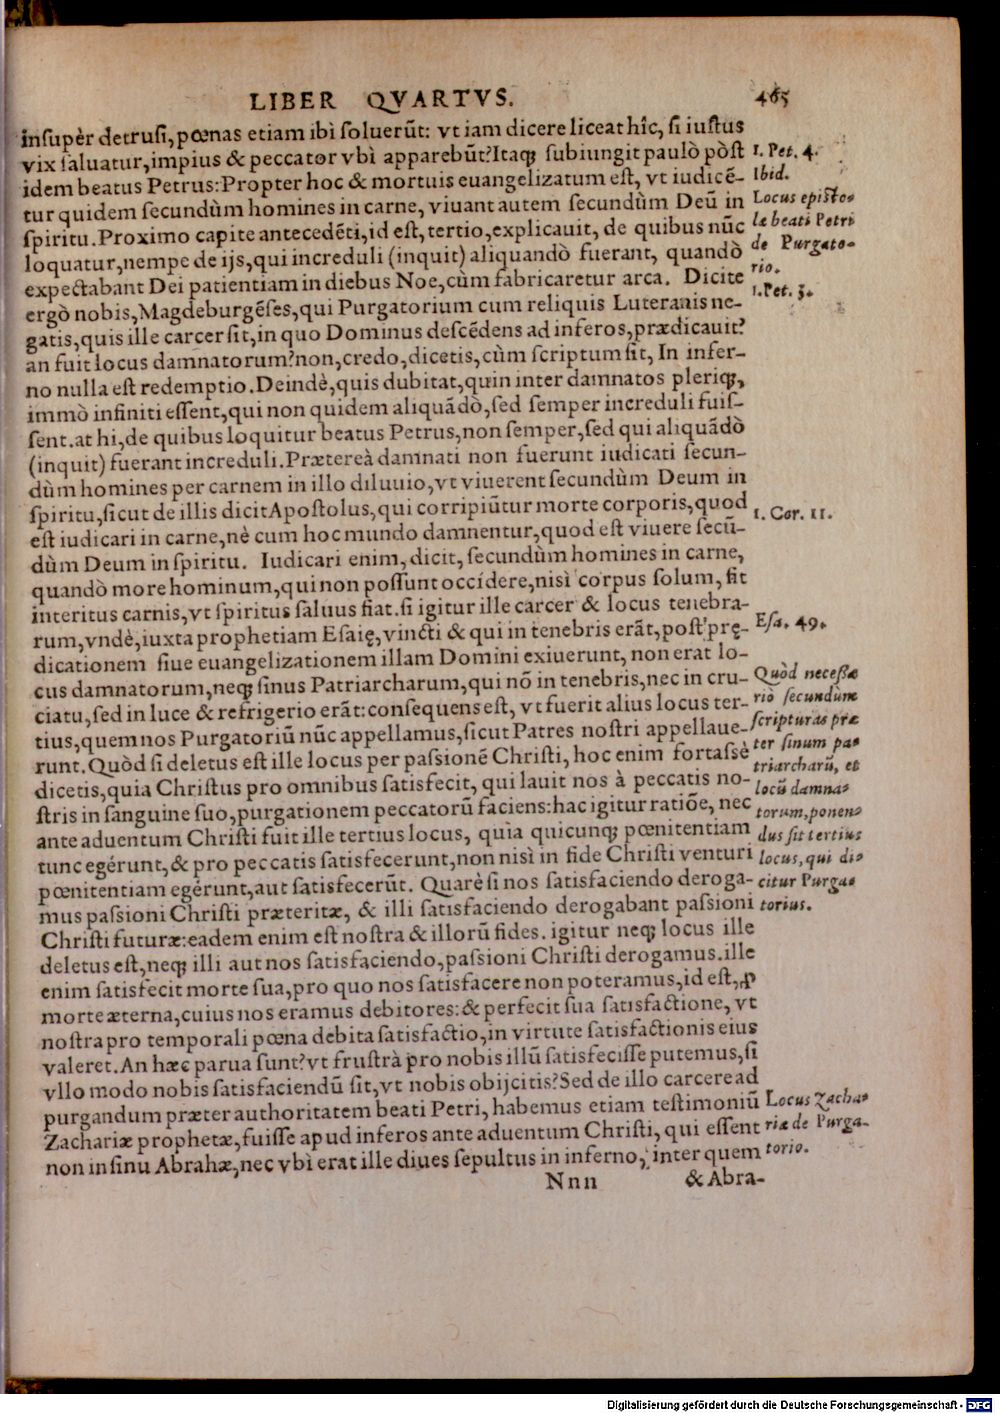 LIBER QVARTVS. 465
insupèr detrusi, pœnas etiam ibì soluerũt: vt iam dicere liceat hîc, si iustus
vix saluatur, impius & peccator vbì apparebũt? Itaq; subiungit paulò pòst
idem beatus Petrus: Propter hoc & mortuis euangelizatum est, vt iudicẽ-
tur quidem secundùm homines in carne, viuant autem secundùm Deũ in
spiritu. Proximo capite antecedẽti, id est, tertio, explicauit, de quibus nũc
loquatur, nempe de ijs, qui increduli (inquit) aliquandò fuerant, quandò
expectabant Dei patientiam in diebus Noe, cùm fabricaretur arca. Dicite
ergò nobis, Magdeburgẽses, qui Purgatorium cum reliquis Luteranis ne-
gatis, quis ille carcer sit, in quo Dominus descẽdens ad inferos, prædicauit?
an fuit locus damnatorum? non, credo, dicetis, cùm scriptum sit, In infer-
no nulla est redemptio. Deindè, quis dubitat, quin inter damnatos pleriq;,
immò infiniti essent, qui non quidem aliquãdò, sed semper increduli fuis-
sent. at hi, de quibus loquitur beatus Petrus, non semper, sed qui aliquãdò
(inquit) fuerant increduli. Prætereà damnati non fuerunt iudicati secun-
dùm homines per carnem in illo diluuio, vt viuerent secundùm Deum in
spiritu, sicut de illis dicit Apostolus, qui corripiũtur morte corporis, quod
est iudicari in carne, nè cum hoc mundo damnentur, quod est viuere secũ-
dùm Deum in spiritu. Iudicari enim, dicit, secundùm homines in carne,
quandò more hominum, qui non possunt occídere, nisì corpus solum, fit
interitus carnis, vt spiritus saluus fiat. si igitur ille carcer & locus tenebra-
rum, vndè, iuxta prophetiam Esaię, vincti & qui in tenebris erãt, post prę-
dicationem siue euangelizationem illam Domini exiuerunt, non erat lo-
cus damnatorum, neq; sinus Patriarcharum, qui nõ in tenebris, nec in cru-
ciatu, sed in luce & refrigerio erãt: consequens est, vt fuerit alius locus ter-
tius, quem nos Purgatoriũ nũc appellamus, sicut Patres nostri appellaue-
runt. Quòd si deletus est ille locus per passionẽ Christi, hoc enim fortassè
dicetis, quia Christus pro omnibus satisfecit, qui lauit nos à peccatis no-
stris in sanguine suo, purgationem peccatorũ faciens: hac igitur ratiõe, nec
ante aduentum Christi fuit ille tertius locus, quia quicunq; pœnitentiam
tunc egérunt, & pro peccatis satisfecerunt, non nisì in fide Christi venturi
pœnitentiam egérunt, aut satisfecerũt. Quarè si nos satisfaciendo deroga-
mus passioni Christi præteritæ, & illi satisfaciendo derogabant passioni
Christi futuræ: eadem enim est nostra & illorũ fides. igitur neq; locus ille
deletus est, neq; illi aut nos satisfaciendo, passioni Christi derogamus. ille
enim satisfecit morte sua, pro quo nos satisfacere non poteramus, id est, ꝓ
morte æterna, cuius nos eramus debitores: & perfecit sua satisfactione, vt
nostra pro temporali pœna debita satisfactio, in virtute satisfactionis eius
valeret. An hæc parua sunt? vt frustrà pro nobis illũ satisfecisse putemus, si
vllo modo nobis satisfaciendũ sit, vt nobis obijcitis? Sed de illo carcere ad
purgandum præter authoritatem beati Petri, habemus etiam testimoniũ
Zachariæ prophetæ, fuisse apud inferos ante aduentum Christi, qui essent
non in sinu Abrahæ, nec vbi erat ille diues sepultus in inferno, inter quem
Nnn & Abra-
1. Pet. 4.
Ibid.
Locus episto-
lę beati Petri
de Purgato-
rio.
1. Pet. 3.
1. Cor. 11.
Esa. 49.
Quòd necessa
riò secundùm
scripturas præ
ter sinum pa-
triarcharũ, et
locũ damna-
torum, ponen-
dus sit tertius
locus, qui di-
citur Purga-
torius.
Locus Zacha-
riæ de Purga-
torio.
Digitalisierung gefördert durch die Deutsche Forschungsgemeinschaft - DFG